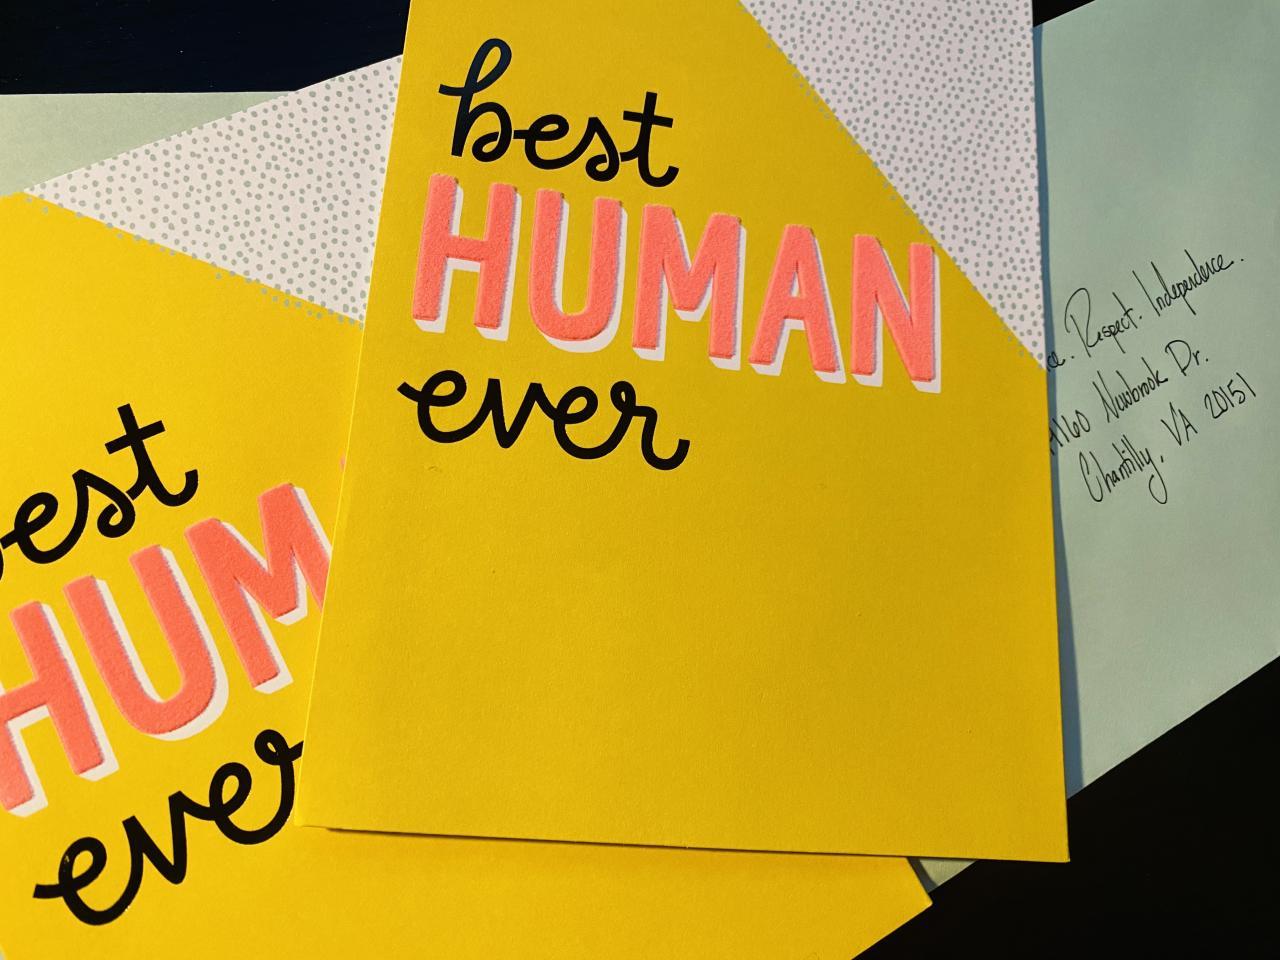 best
HUMAN
ever
est
HUM
ever
ce. Respect. Independence.
4160 Newbrook Dr.
Chantilly, VA 20151